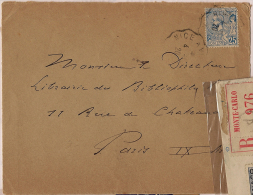 NICE
25
Monsieur le Directeur
Librairie du Bibliophile
11 Rue de Chateau
Paris IX
MONTE-CARLO
R
976